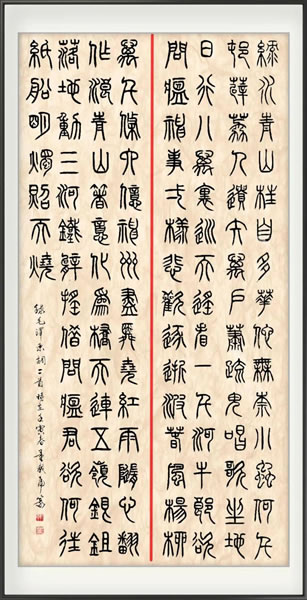 綠水青山枉自多華佗無奈小蟲何千
邨薜荔人遺矢萬戶蕭疏鬼唱歌坐地
日行八萬里巡天遙看一千河牛郎欲
問瘟神事一樣悲歡逐逝波春風楊柳
萬千條六億神州盡舜堯紅雨隨心翻
作浪青山著意化為橋天連五嶺銀鋤
落地動三河鐵臂搖借問瘟君欲何往
紙船明燭照天燒
錄毛澤東詞二首 壬寅春